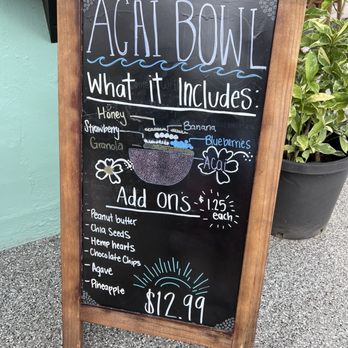 ACAI BOWL
What it Includes:
Honey
Strawberry
Banana
Granola
Blueberries
Acai
Add ons - $1.25 each
- Peanut butter
- Chia Seeds
- Hemp hearts
- Chocolate Chips
- Agave
- Pineapple
$12.99